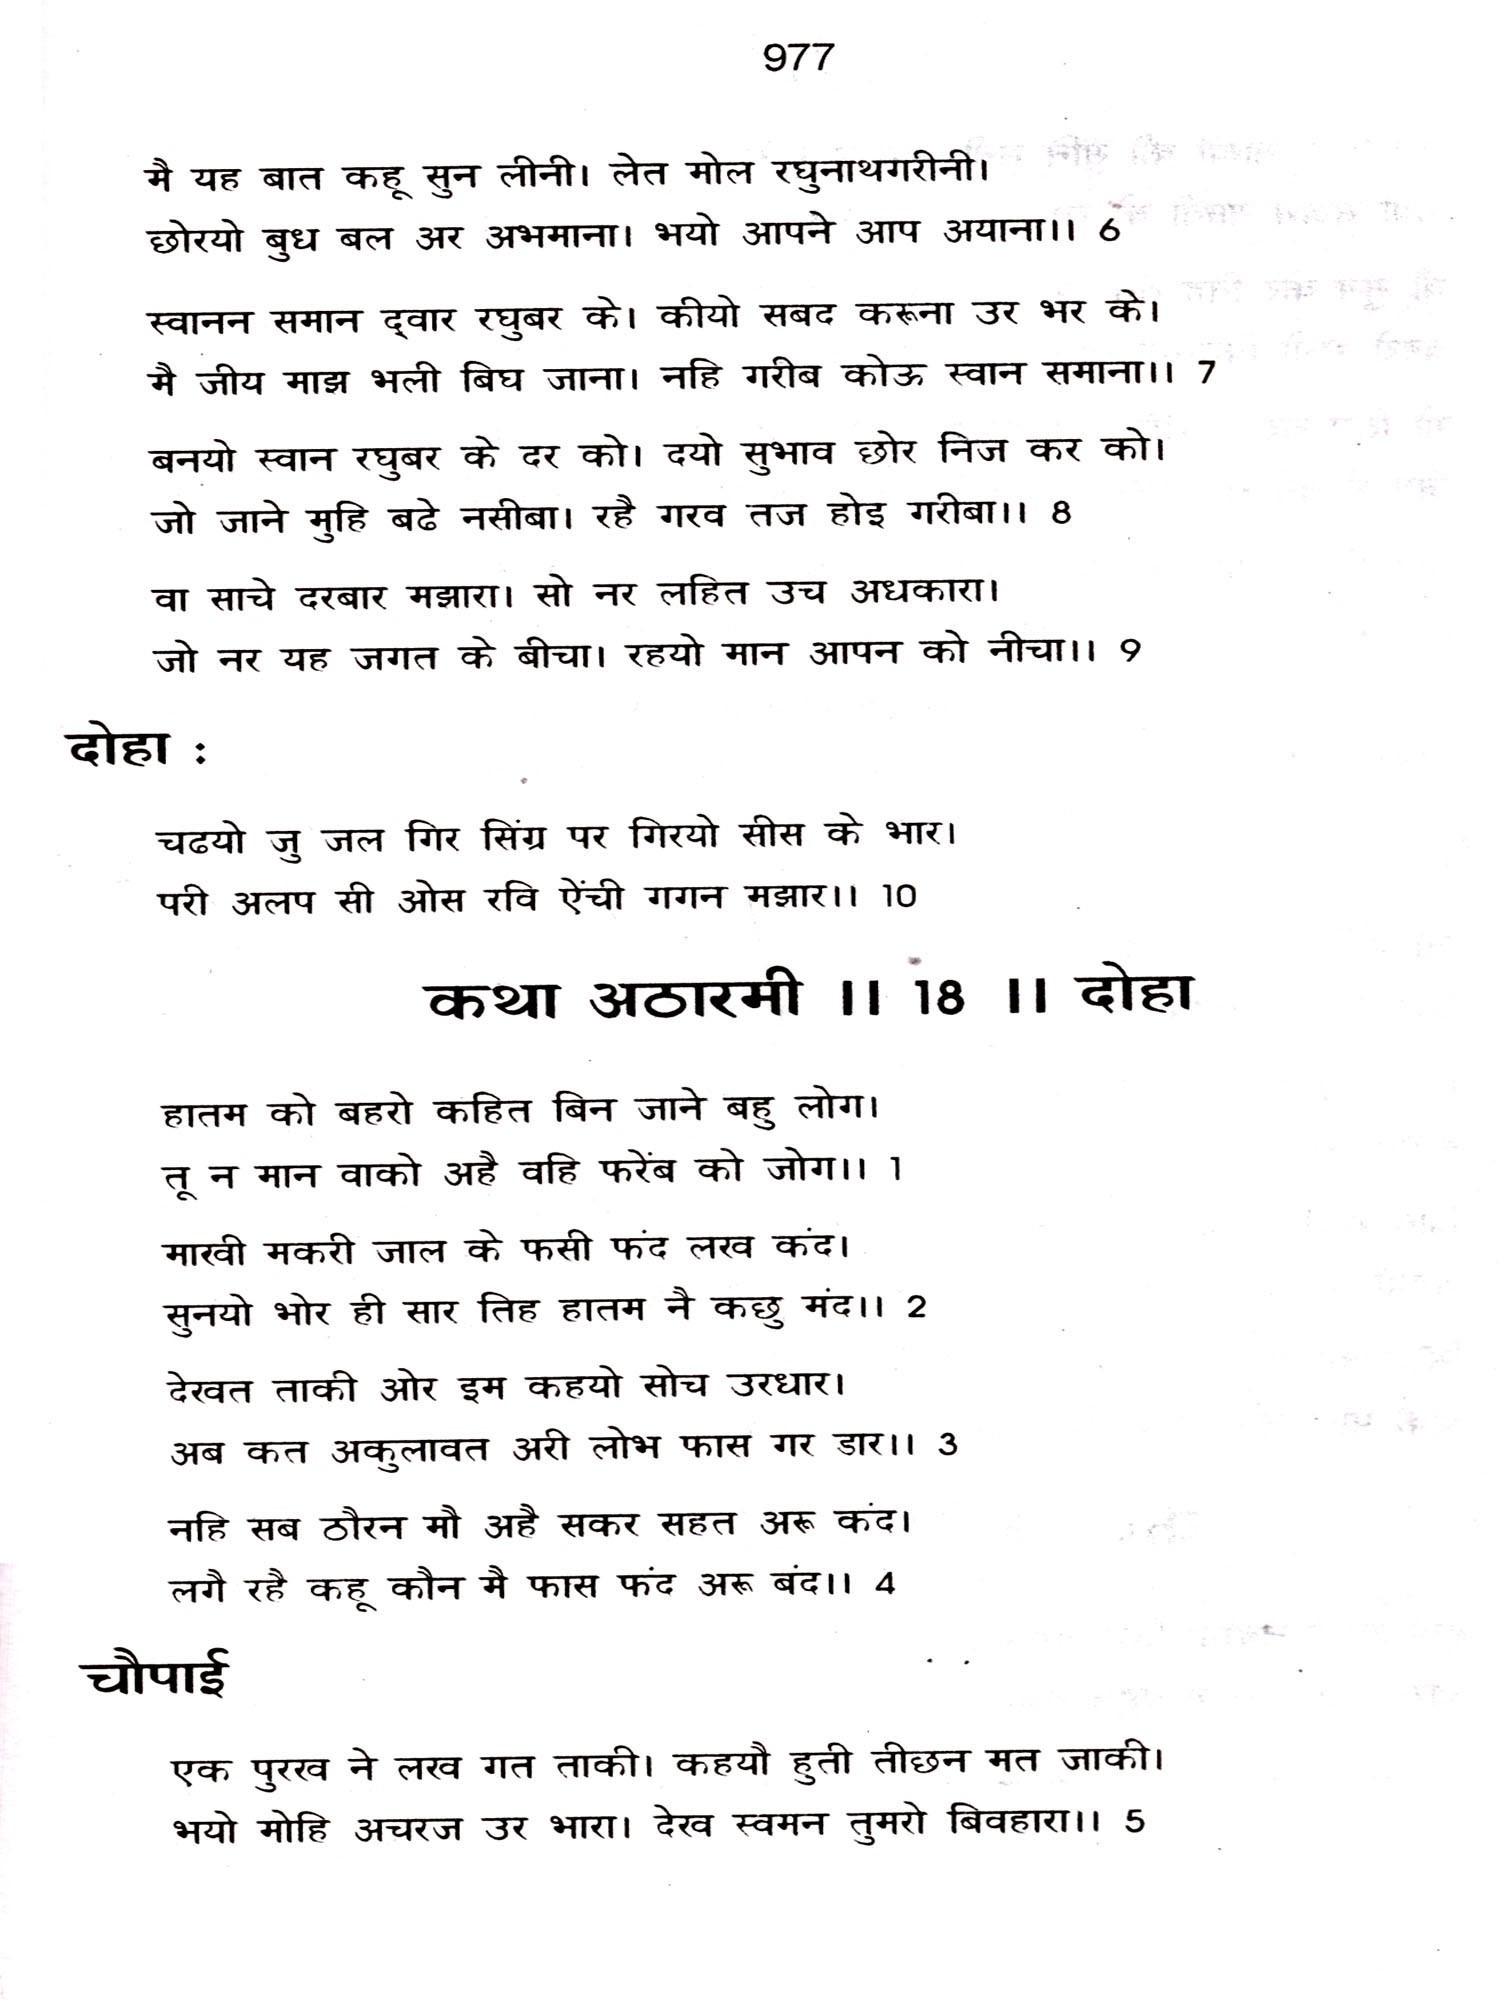 977
मै यह बात कहू सुन लीनी। लेत मोल रघुनाथगरीनी।
छोरयो बुध बल अर अभमाना। भयो आपने आप अयाना।। 6
स्वानन समान द्वार रघुबर के। कीयो सबद करूना उर भर के।
मै जीय माझ भली बिघ जाना। नहि गरीब कोऊ स्वान समाना।। 7
बनयो स्वान रघुबर के दर को। दयो सुभाव छोर निज कर को।
जो जाने मुहि बढे नसीबा। रहै गरव तज होइ गरीबा।। 8
वा साचे दरबार मझारा। सो नर लहित उच अधकारा।
जो नर यह जगत के बीचा। रहयो मान आपन को नीचा।। 9
दोहा :
चढयो जु जल गिर सिंग्र पर गिरयो सीस के भार।
परी अलप सी ओस रवि ऐंची गगन मझार।। 10
कथा अठारमी ।। 18 ।। दोहा
हातम को बहरो कहित बिन जाने बहु लोग।
तू न मान वाको अहै वहि फरेंब को जोग।। 1
माखी मकरी जाल के फसी फंद लख कंद।
सुनयो भोर ही सार तिह हातम नै कछु मंद।। 2
देखत ताकी ओर इम कहयो सोच उरधार।
अब कत अकुलावत अरी लोभ फास गर डार।। 3
नहि सब ठौरन मौ अहै सकर सहत अरू कंद।
लगै रहै कहू कौन मै फास फंद अरू बंद।। 4
चौपाई
एक पुरख ने लख गत ताकी। कहयौ हुती तीछन मत जाकी।
भयो मोहि अचरज उर भारा। देख स्वमन तुमरो बिवहारा।। 5